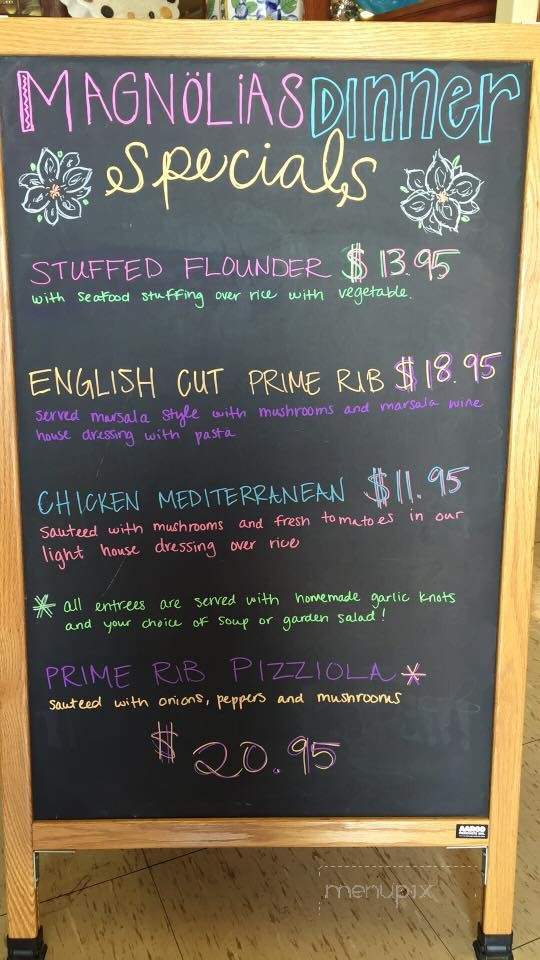 MAGNÖLIAS DINNER
Specials
STUFFED FLOUNDER $13.95
with seafood stuffing over rice with vegetable.
ENGLISH CUT PRIME RIB $18.95
served marsala style with mushrooms and marsala wine
house dressing with pasta
CHICKEN MEDITERRANEAN $11.95
sauteed with mushrooms and fresh tomatoes in our
light house dressing over rice
* all entrees are served with homemade garlic knots
and your choice of soup or garden salad!
PRIME RIB PIZZIOLA *
sauteed with onions, peppers and mushrooms
$ 20.95
AARCO
menupix